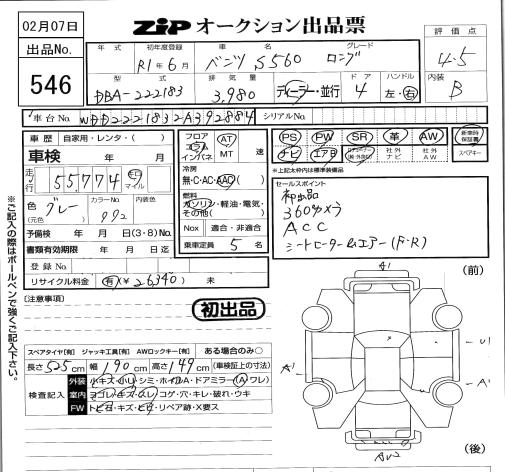 02月07日
ZIP オークション出品票
出品No.
546
年式 初年度登録 車名 グレード
R1年6月 ベンツ S560 ロング
型式 排気量 ドア ハンドル
DBA-222183 3,980 ディーラー・並行 4 左・右
評価点
4.5
内装
B
車台No. WDD2221832A392884 シリアルNo.
車歴 自家用・レンタ・( )
車検 年 月
走行 55,774 キロ マイル
色 グレー (元色) カラーNo. 992 内装色
予備検 年 月 日(3・8)No.
書類有効期限 年 月 日迄
登録No.
リサイクル料金 有(¥ 26340) 未
フロア コラム インパネ AT MT 速
冷房
無・C・AC・AAC
燃料
ガソリン・軽油・電気・その他( )
Nox 適合・非適合
乗車定員 5 名
PS PW SR 革 AW 新車時保証書
ナビ エアB 社外ナビ 社外AW スペアキー
※上記太枠内は標準装備品
セールスポイント
初出品
360カメラ
ACC
シートヒーター&エアー(F・R)
(注意事項)
初出品
スペアタイヤ[有] ジャッキ工具[有] AWロックキー[有] ある場合のみ○
長さ525cm 幅190cm 高さ149cm (車検証上の寸法)
検査記入
外装 小キズ・小U・シミ・ホイルA・ドアミラー(A・ワレ)
室内 ヨゴレ・キズ・スレ・コゲ・穴・キレ・破れ・ウキ
FW トビ石・キズ・ヒビ・リペア跡・X要ス
※ご記入の際はボールペンで強くご記入下さい。
(前)
A1
A1
U1
A1
(後)